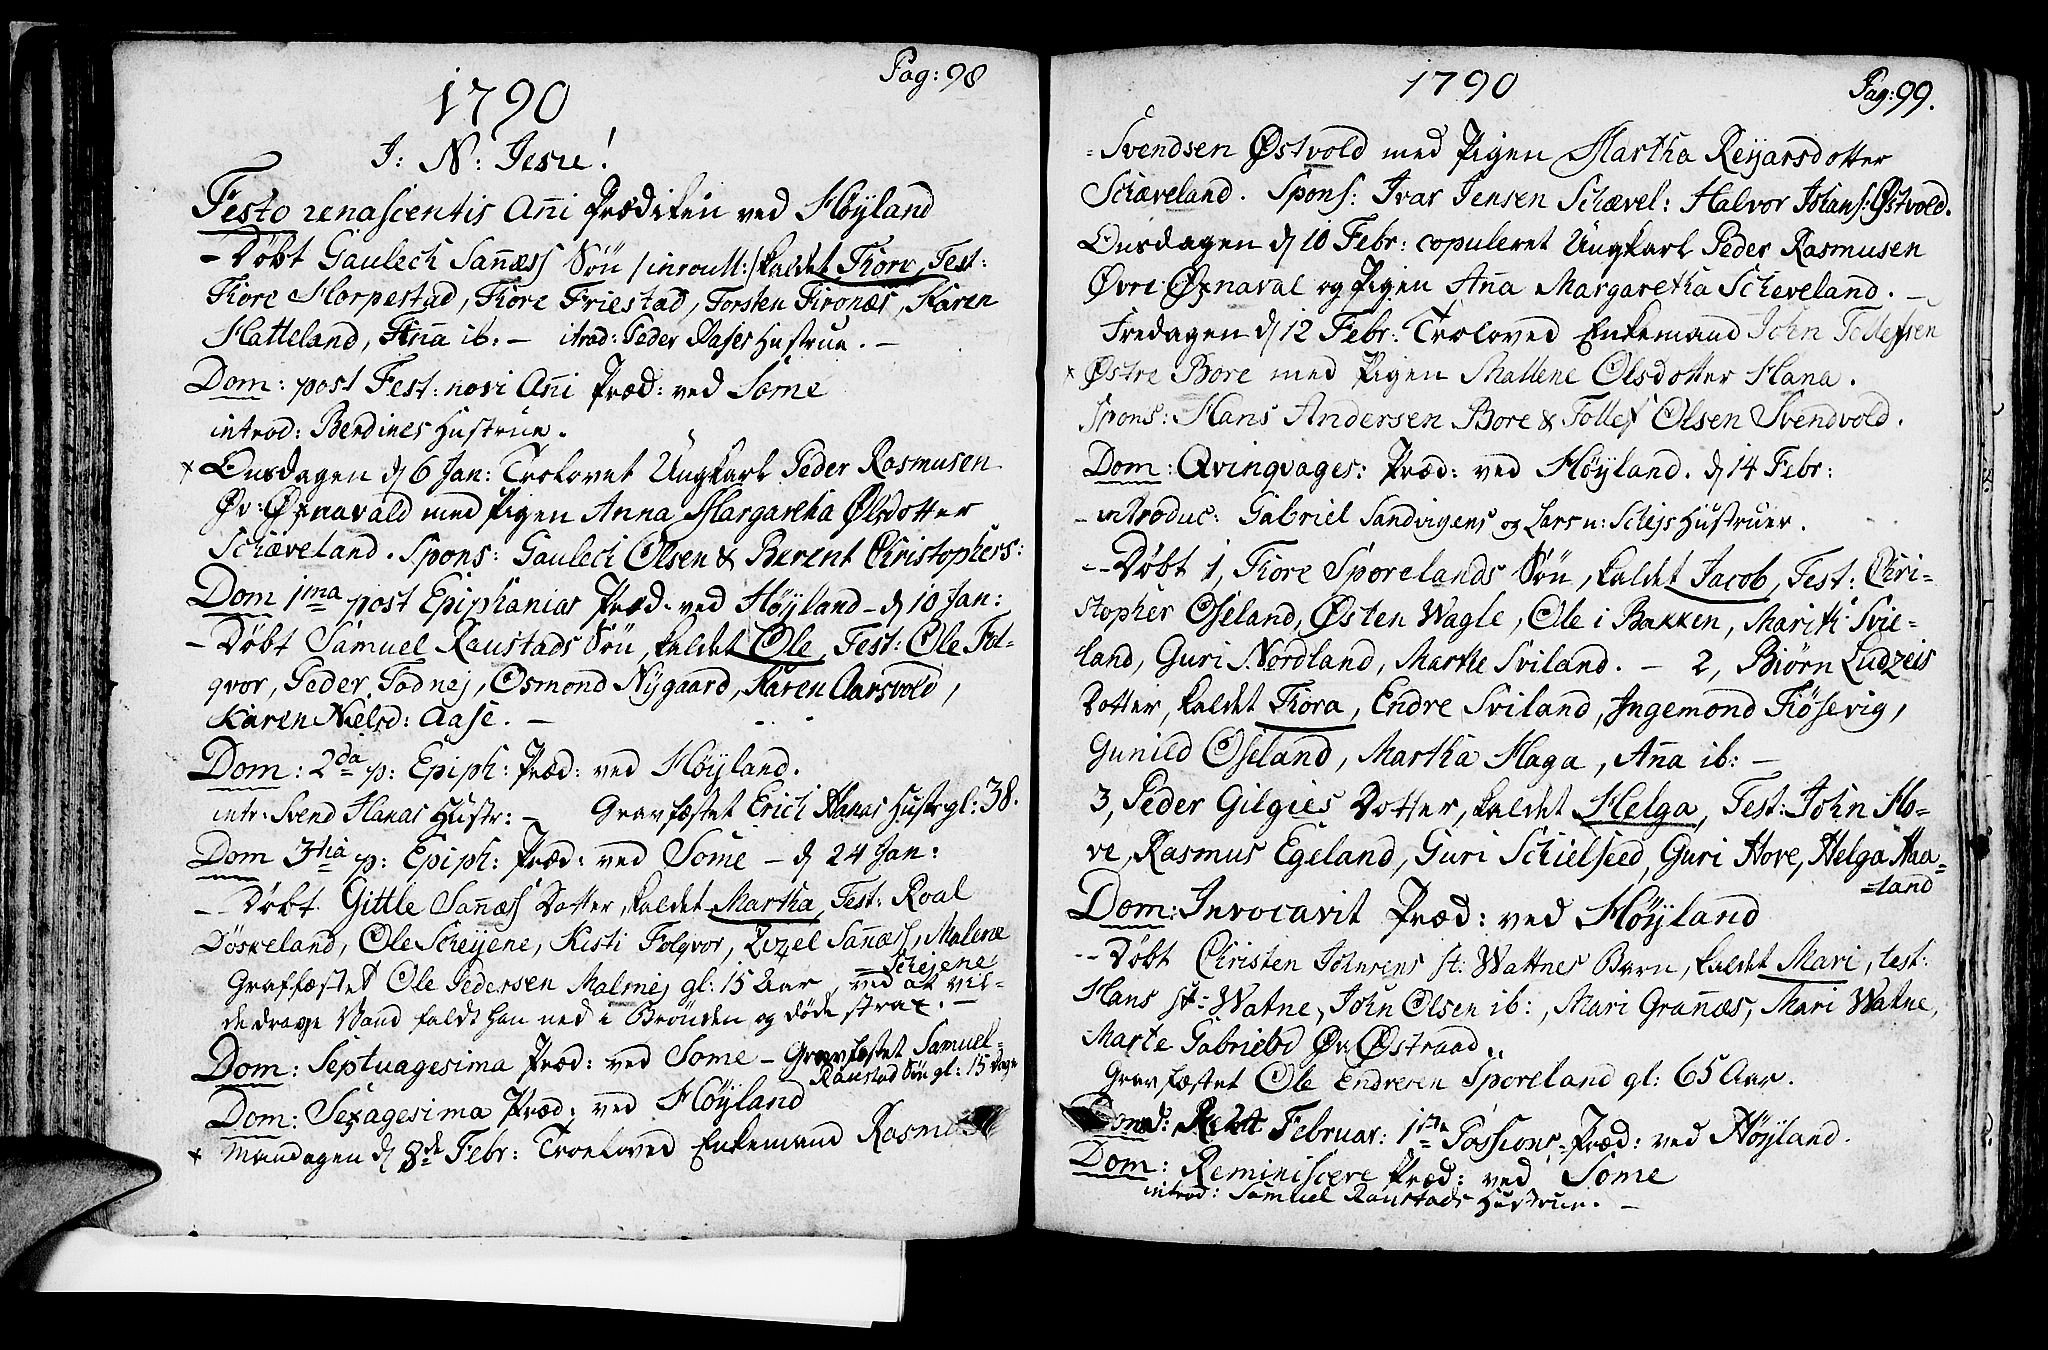 Pag: 98
1790
J: N: Jesu!
Festo renascentis Añi Prædiken ved Höyland
- Döbt Gaulech Sañæss Sön /incult:/ kaldet Tiore, Test:
Tiore Horpestad, Tiore Friestad, Torsten Tronæs, Karen
Hatteland, Aña ib: - itrod: Peder Aases Hustrue. -
Dom: post Fest: novi Añi Præd: ved Some
introd: Berdines Hustrue.
x Onsdagen d 6 Jan: Trolovet Ungkarl Peder Rasmusen
Öv: Öxnavald med Pigen Anna Margaretha Olsdotter
Schæveland. Spons: Gaulech Olsen & Berent Christophers:
Dom 1ma post Epiphanias Præd: ved Höyland - d 10 Jan:
- Döbt Samuel Raustads Sön, kaldet Ole, Test: Ole Fol-
qvor, Peder Todnej, Osmond Nÿgaard, Karen Aarsvold,
Karen Nielsd: Aase. -
Dom: 2da p: Epiph: Præd: ved Höyland.
intr: Svend Hanas Hustr: - Gravfæstet Erich Hanas Hustr gl: 38.
Dom 3tia p: Epiph: Præd: ved Some - d 24 Jan:
-- Döbt Gittle Sañæss Dotter, kaldet Martha, Test: Roal
Döskeland, Ole Scheyene, Kisti Folqvor, Zizel Sañæss, Malene
= Schejene
Graffæstet Ole Pedersen Malmej gl: 15 Aar, ved at vil-
de drage Vand faldt han ned i Brönden og döde strax. -
Dom: Septuagesima Præd: ved Some - Gravfæstet Samuel =
Raustad Sön gl: 15 Dage
Dom: Sexagesima Præd: ved Höyland
x Mandagen d 8de Febr: Troeloved Enkemand Rasmus
1790
Pag: 99.
= Svendsen Östvold med Pigen Martha Reijarsdotter
Schæveland. Spons: Ivar Jensen Schævel: Halvor Johans: Östvold.
Onsdagen d 10 Febr: copuleret Ungkarl Peder Rasmusen
Övre Öxnaval og Pigen Aña Margaretha Scheveland. -
Fredagen d 12 Febr: Troloved Enkemand John Tollefsen
x Östre Bore med Pigen Mallene Olsdotter Hana.
Spons: Hans Andersen Bore & Tollef Olsen Svendvold.
Dom: Qvinqvages: Præd: ved Höyland. d 14 Febr:
- introduc: Gabriel Sandvigens og Lars n: Schejs Hustruer.
-- Döbt 1, Tiore Sporelands Sön, kaldet Jacob, Test: Chri-
stopher Oseland, Östen Wagle, Ole i Bakken, Marith Svie-
land, Guri Nordland, Marthe Sviland. - 2, Biörn Ludzeis
Dotter, kaldet Tiora, Endre Sviland, Ingemond Kiösevig,
Gunild Oseland, Martha Haga, Aña ib: -
3, Peder Gilgies Dotter, kaldet Helga, Test: John Ho-
ve, Rasmus Egeland, Guri Schielseed, Guri Hove, Helga Haa-
=land
Dom: Invocavit Præd: ved Höyland
-- Döbt Christen Johnsens st: Wattnes Barn, kaldet Mari, test:
Hans st: Watne, John Olsen ib:, Mari Grañæs, Mari Watne,
Marte Gabrielsd Öv: Östraad.
Gravfæstet Ole Endresen Sporeland gl: 65 Aar.
24 Februar: 1ste Passions-Præd: ved Höyland.
Dom: Reminiscere Præd: ved Some
introd: Samuel Raustads Hustrue. -